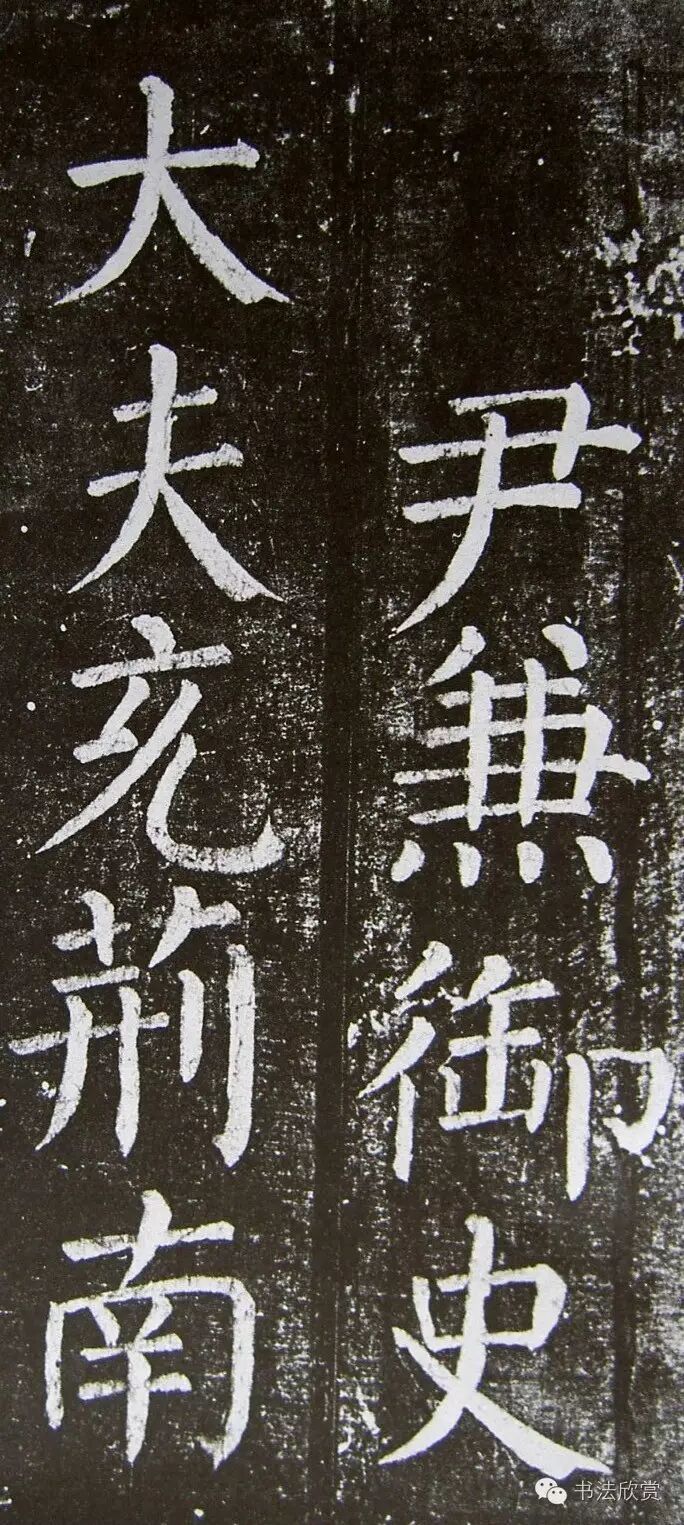 尹兼御史
大夫充荆南
书法欣赏